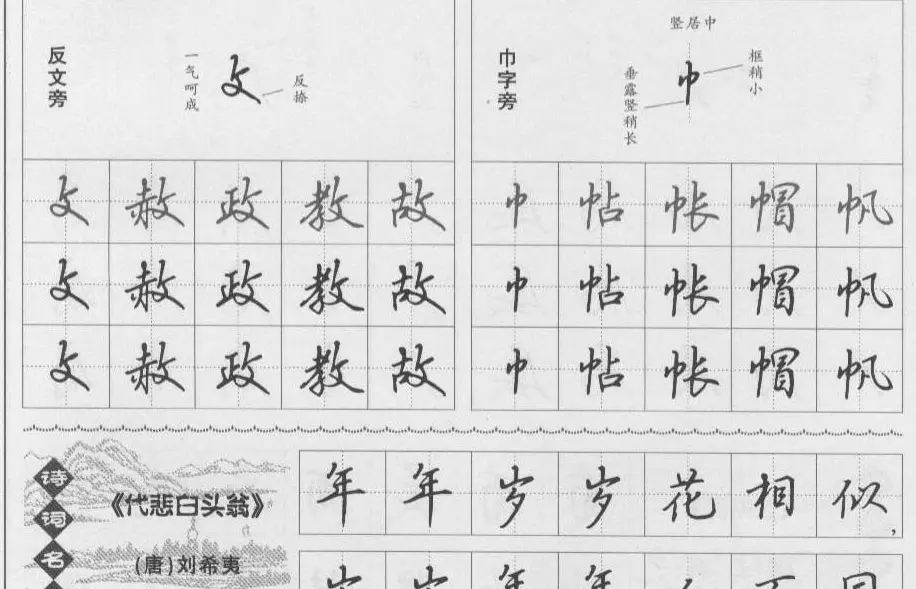 反文旁
一气呵成
攵
反捺
攵 赦 政 教 故
攵 赦 政 教 故
攵 赦 政 教 故
巾字旁
竖居中
巾
框稍小
垂露竖稍长
巾 帖 帐 帽 帆
巾 帖 帐 帽 帆
巾 帖 帐 帽 帆
诗词名
《代悲白头翁》
(唐)刘希夷
年年岁岁花相似,